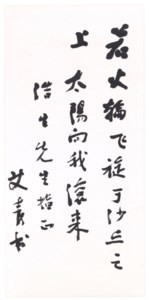 若火輪飞旋于沙丘之
上 太陽向我滾来
浩生先生指正
艾青书